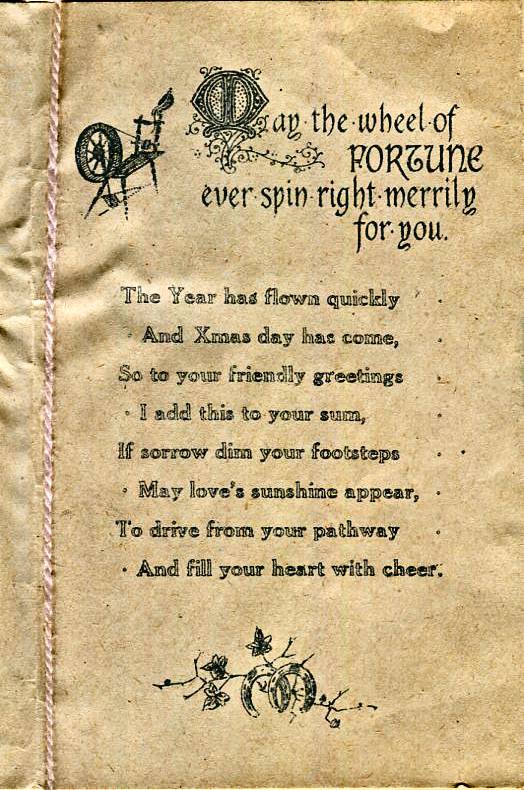 May·the·wheel·of
FORTUNE
ever·spin·right·merrily
for·you.
The Year has flown quickly
And Xmas day has come,
So to your friendly greetings
I add this to your sum,
If sorrow dim your footsteps
May love's sunshine appear,
To drive from your pathway
And fill your heart with cheer.